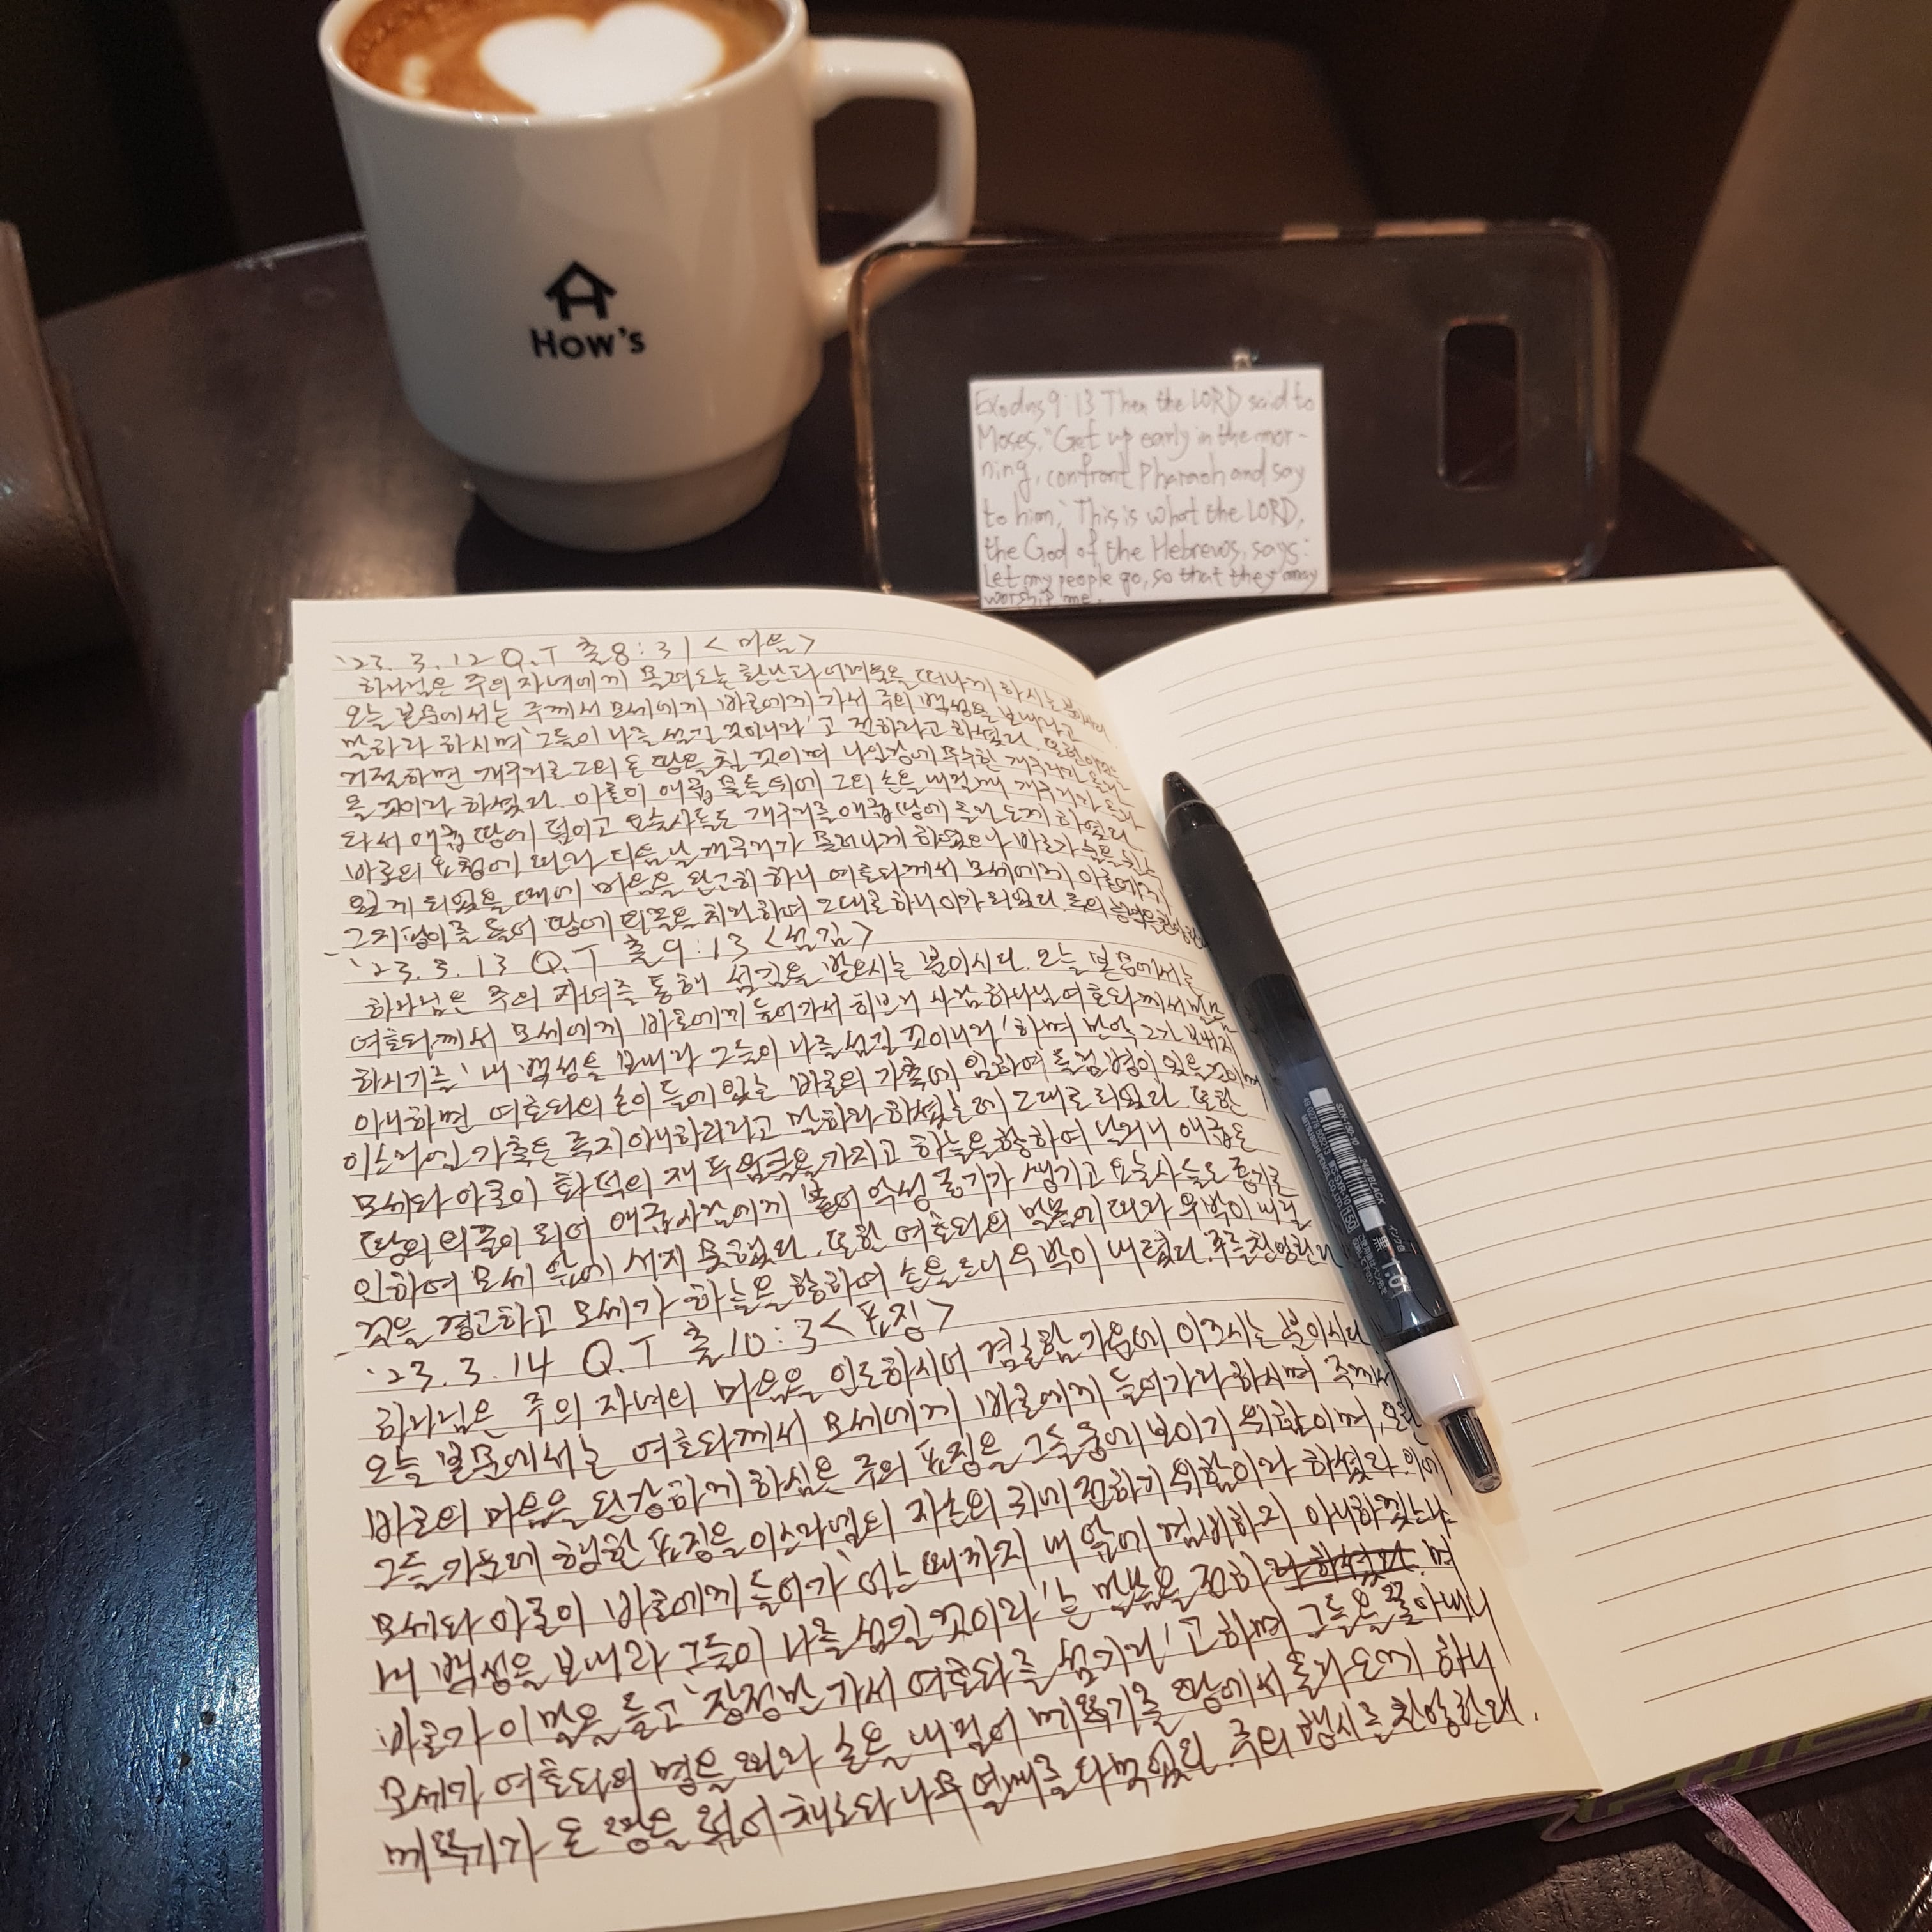 How's
Exodus 9:13 Then the LORD said to
Moses, "Get up early in the mor-
ning, confront Pharaoh and say
to him, 'This is what the LORD,
the God of the Hebrews, says:
Let my people go, so that they may
worship me.
'23. 3. 12 Q.T 출8:31 <마음>
하나님은 주의 자녀에게 몰려오는 환난과 어려움을 떠나게 하시는
오늘 본문에서는 주께서 모세에게 '바로에게 가서 주의 백성을 보내라고
말하라 하시며 '그들이 나를 섬길 것이니라'고 전하라고 하셨다. 또한
거절하면 개구리로 그의 온 땅을 칠 것이며 나일강에 무수한 개구리가
올 것이라 하셨다. 아론이 애굽 물들 위에 그의 손을 내밀매 개구리가 올라
와서 애굽 땅에 덮이고 요술사들도 개구리를 애굽 땅에 올라오게 하였다.
바로의 요청에 따라 다음날 개구리가 물러나게 하였으나 바로가 숨을
쉴 게 되었을 때에 마음을 완고히 하니 여호와께서 모세에게 아론에게
그 지팡이를 들어 땅에 티끌을 치라 하며 그대로 하니 이가 되었다. 주의
'23. 3. 13 Q.T 출9:13 <섬김>
하나님은 주의 자녀를 통해 섬김을 받으시는 분이시다. 오늘 본문에서는
여호와께서 모세에게 '바로에게 들어가서 히브리 사람 하나님 여호와께서 말씀
하시기를 '내 백성을 보내라 그들이 나를 섬길 것이니라' 하며 만약 그가 보내지
아니하면 여호와의 손이 들에 있는 바로의 가축에 임하여 돌림병이 있을 것이며
이스라엘 가축은 죽지 아니하리라고 말하라 하셨는데 그대로 되었다. 또한
모세와 아론이 화덕의 재 두 움큼을 가지고 하늘을 향하여 날리니 애굽 온
땅의 티끌이 되어 애굽 사람에게 붙어 악성 종기가 생기고 요술사들도 종기로
인하여 모세 앞에 서지 못했다. 또한 여호와의 말씀에 따라 우박이 내릴
것을 경고하고 모세가 하늘을 향하여 손을 드니 우박이 내렸다. 주를 찬양한다
'23. 3. 14 Q.T 출10:3 <표징>
하나님은 주의 자녀의 마음을 인도하시며 겸손함 가운데 이끄시는 분이시다
오늘 본문에서는 여호와께서 모세에게 '바로에게 들어가라 하시며 주께서
바로의 마음을 완강하게 하심은 주의 표징을 그들 중에 보이기 위함이며, 또한
그들 가운데 행한 표징을 이스라엘의 자손의 귀에 전하기 위함이라 하셨다. 이에
모세와 아론이 바로에게 들어가 '어느 때까지 내 앞에 겸비하지 아니하겠느냐
내 백성을 보내라 그들이 나를 섬길 것이라'는 말씀을 전하라 하셨다. 며
바로가 이 말을 듣고 '장정만 가서 여호와를 섬기라'고 하며 그들을 쫓아내니
모세가 여호와의 명을 따라 손을 내밀어 메뚜기를 땅에서 올라오게 하니
메뚜기가 온 땅을 덮어 채소와 나무 열매를 다 먹었다. 주의 행사를 찬양한다.
SXN-150-10
24黒/BLACK
MITSUBISHI PENCIL CO.,LTD.
インク色
黒 1.0